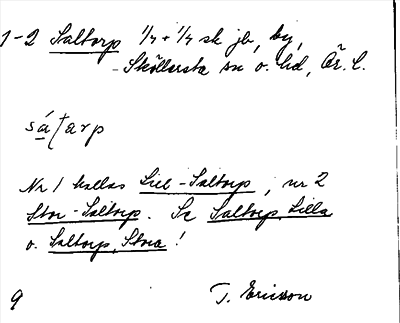 1-2 Saltorp 1/4 + 1/4 sk jb, by,
Sköllersta sn o. hd, Ör. l.
sáʈarp
Nr 1 kallas Lill-Saltorp, nr 2
Stor-Saltorp. Se Saltorp, Lilla
o. Saltorp, Stora!
9 T. Ericsson